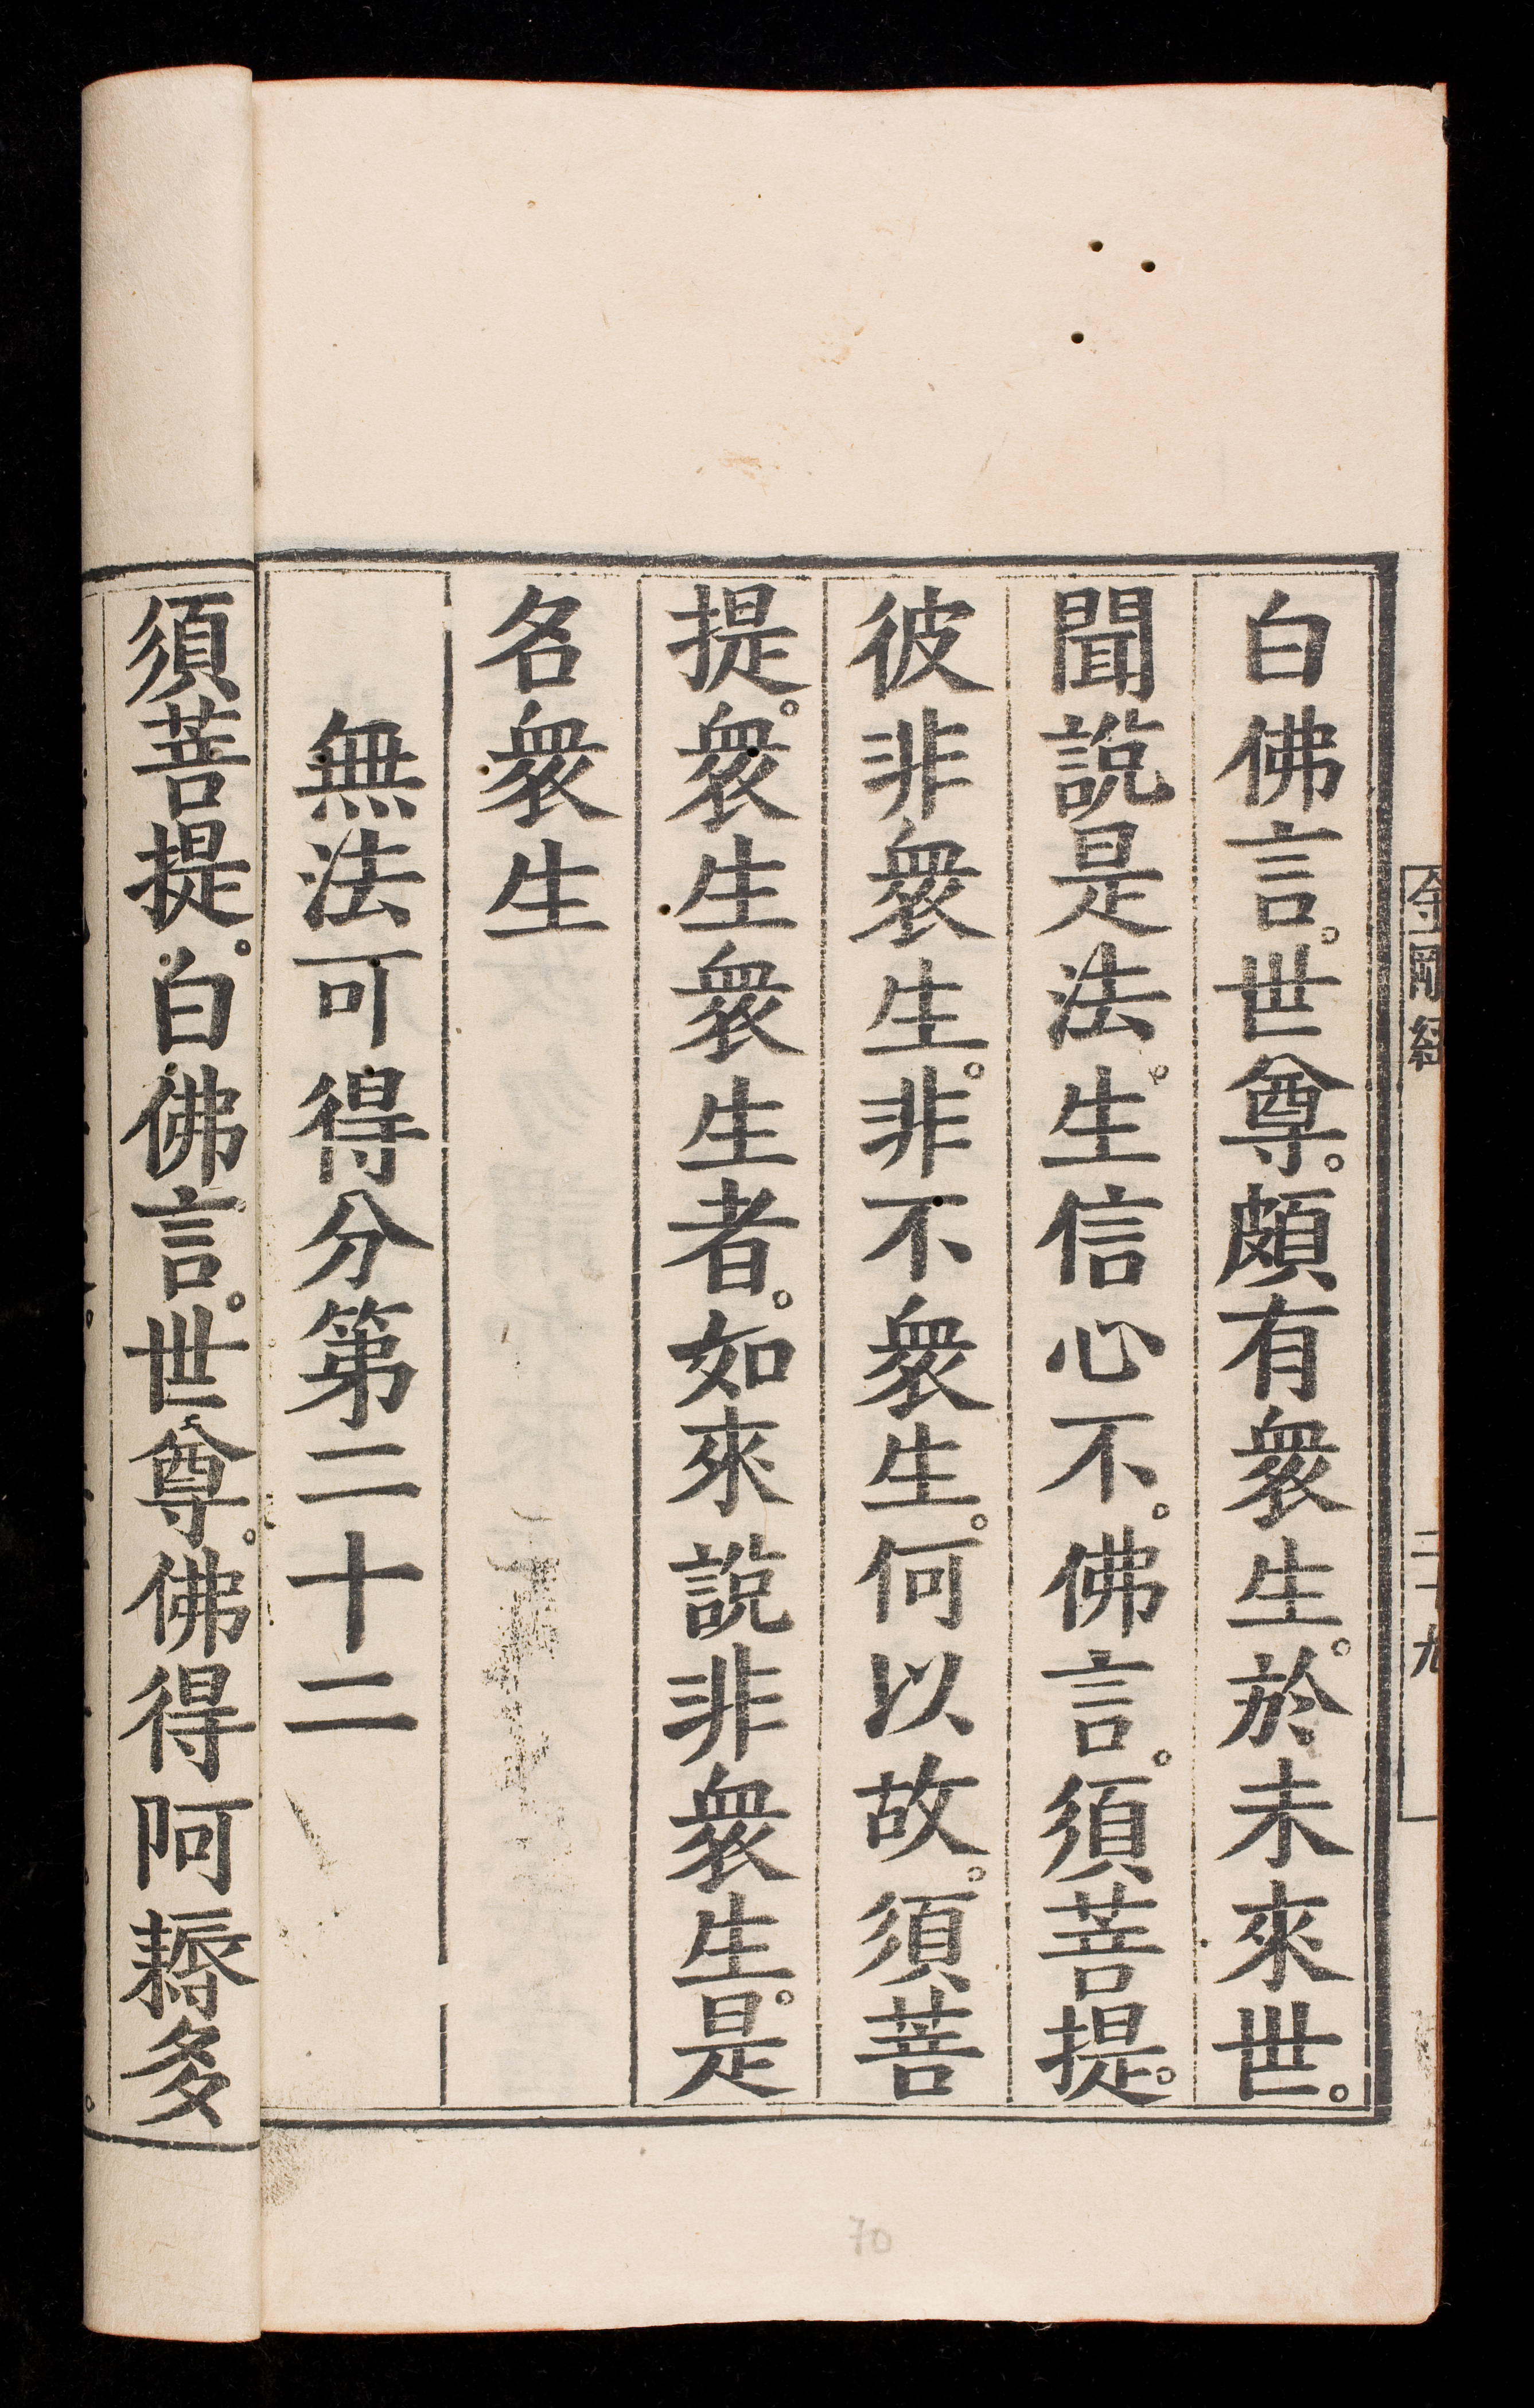 金剛經
二十九
白佛言。世尊。頗有衆生。於未來世。
聞說是法。生信心不。佛言。須菩提。
彼非衆生。非不衆生。何以故。須菩
提。衆生衆生者。如來說非衆生。是
名衆生
無法可得分第二十二
須菩提。白佛言。世尊。佛得阿耨多
70